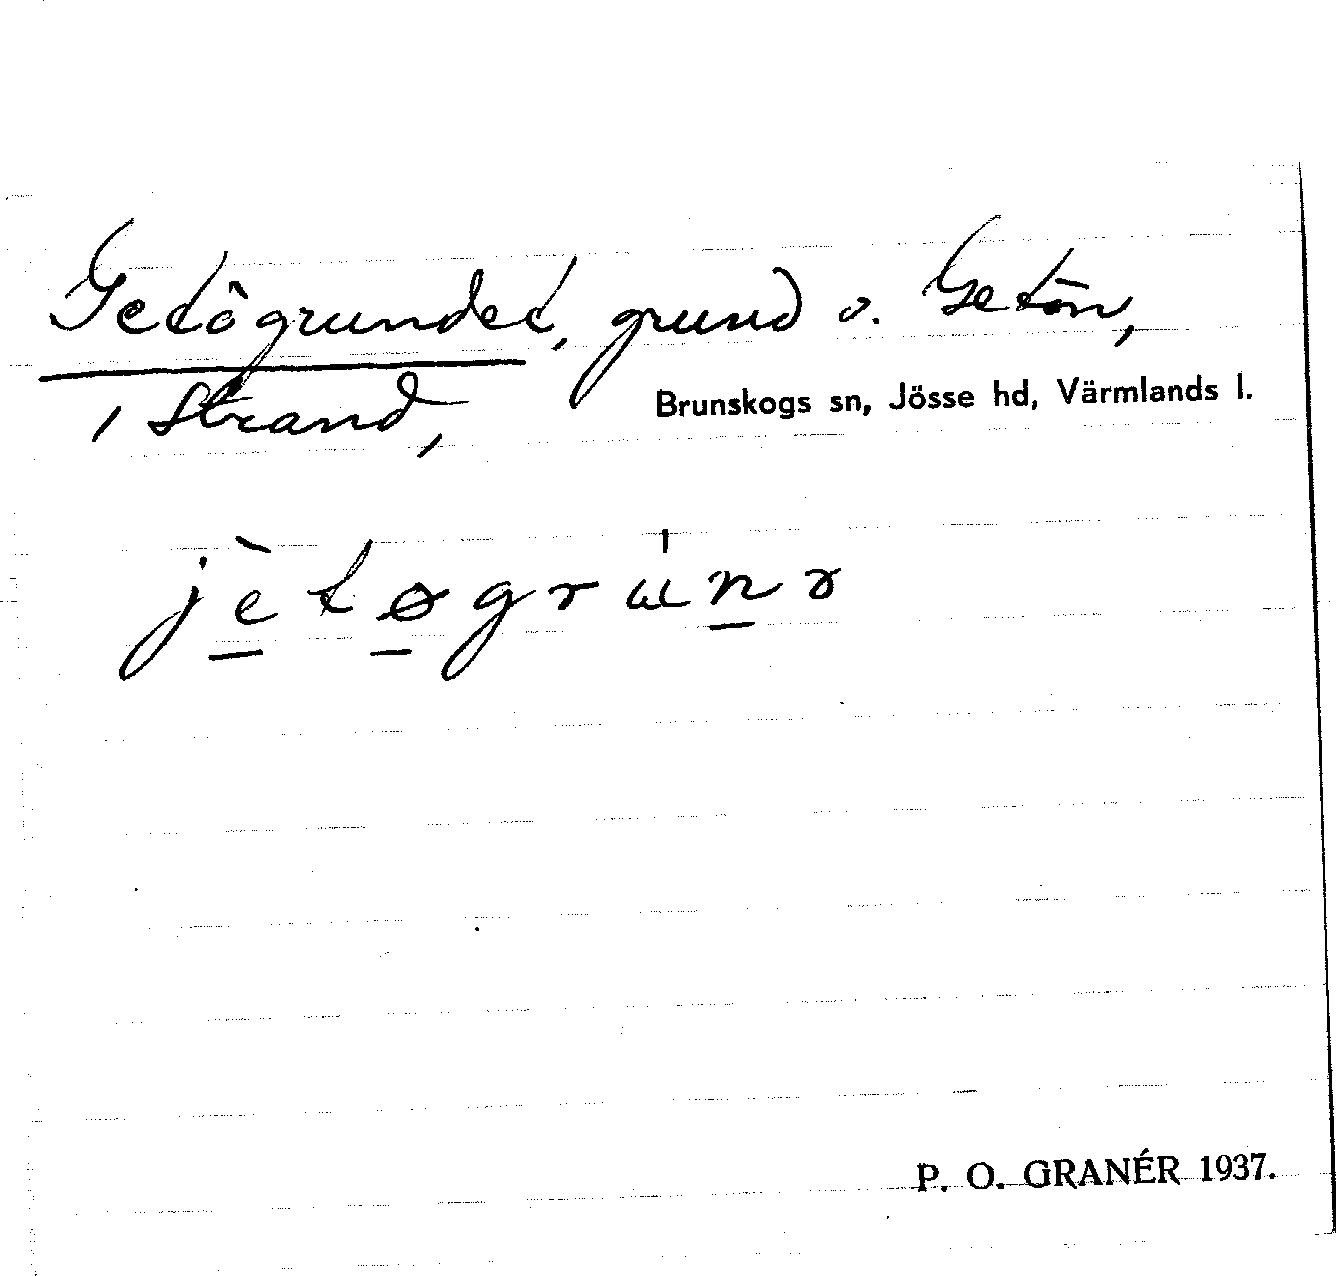 Getögrundet, grund v. Getön,
i Strand, Brunskogs sn, Jösse hd, Värmlands l.
jètøgrɯ̍nɤ
P. O. GRANÉR 1937.